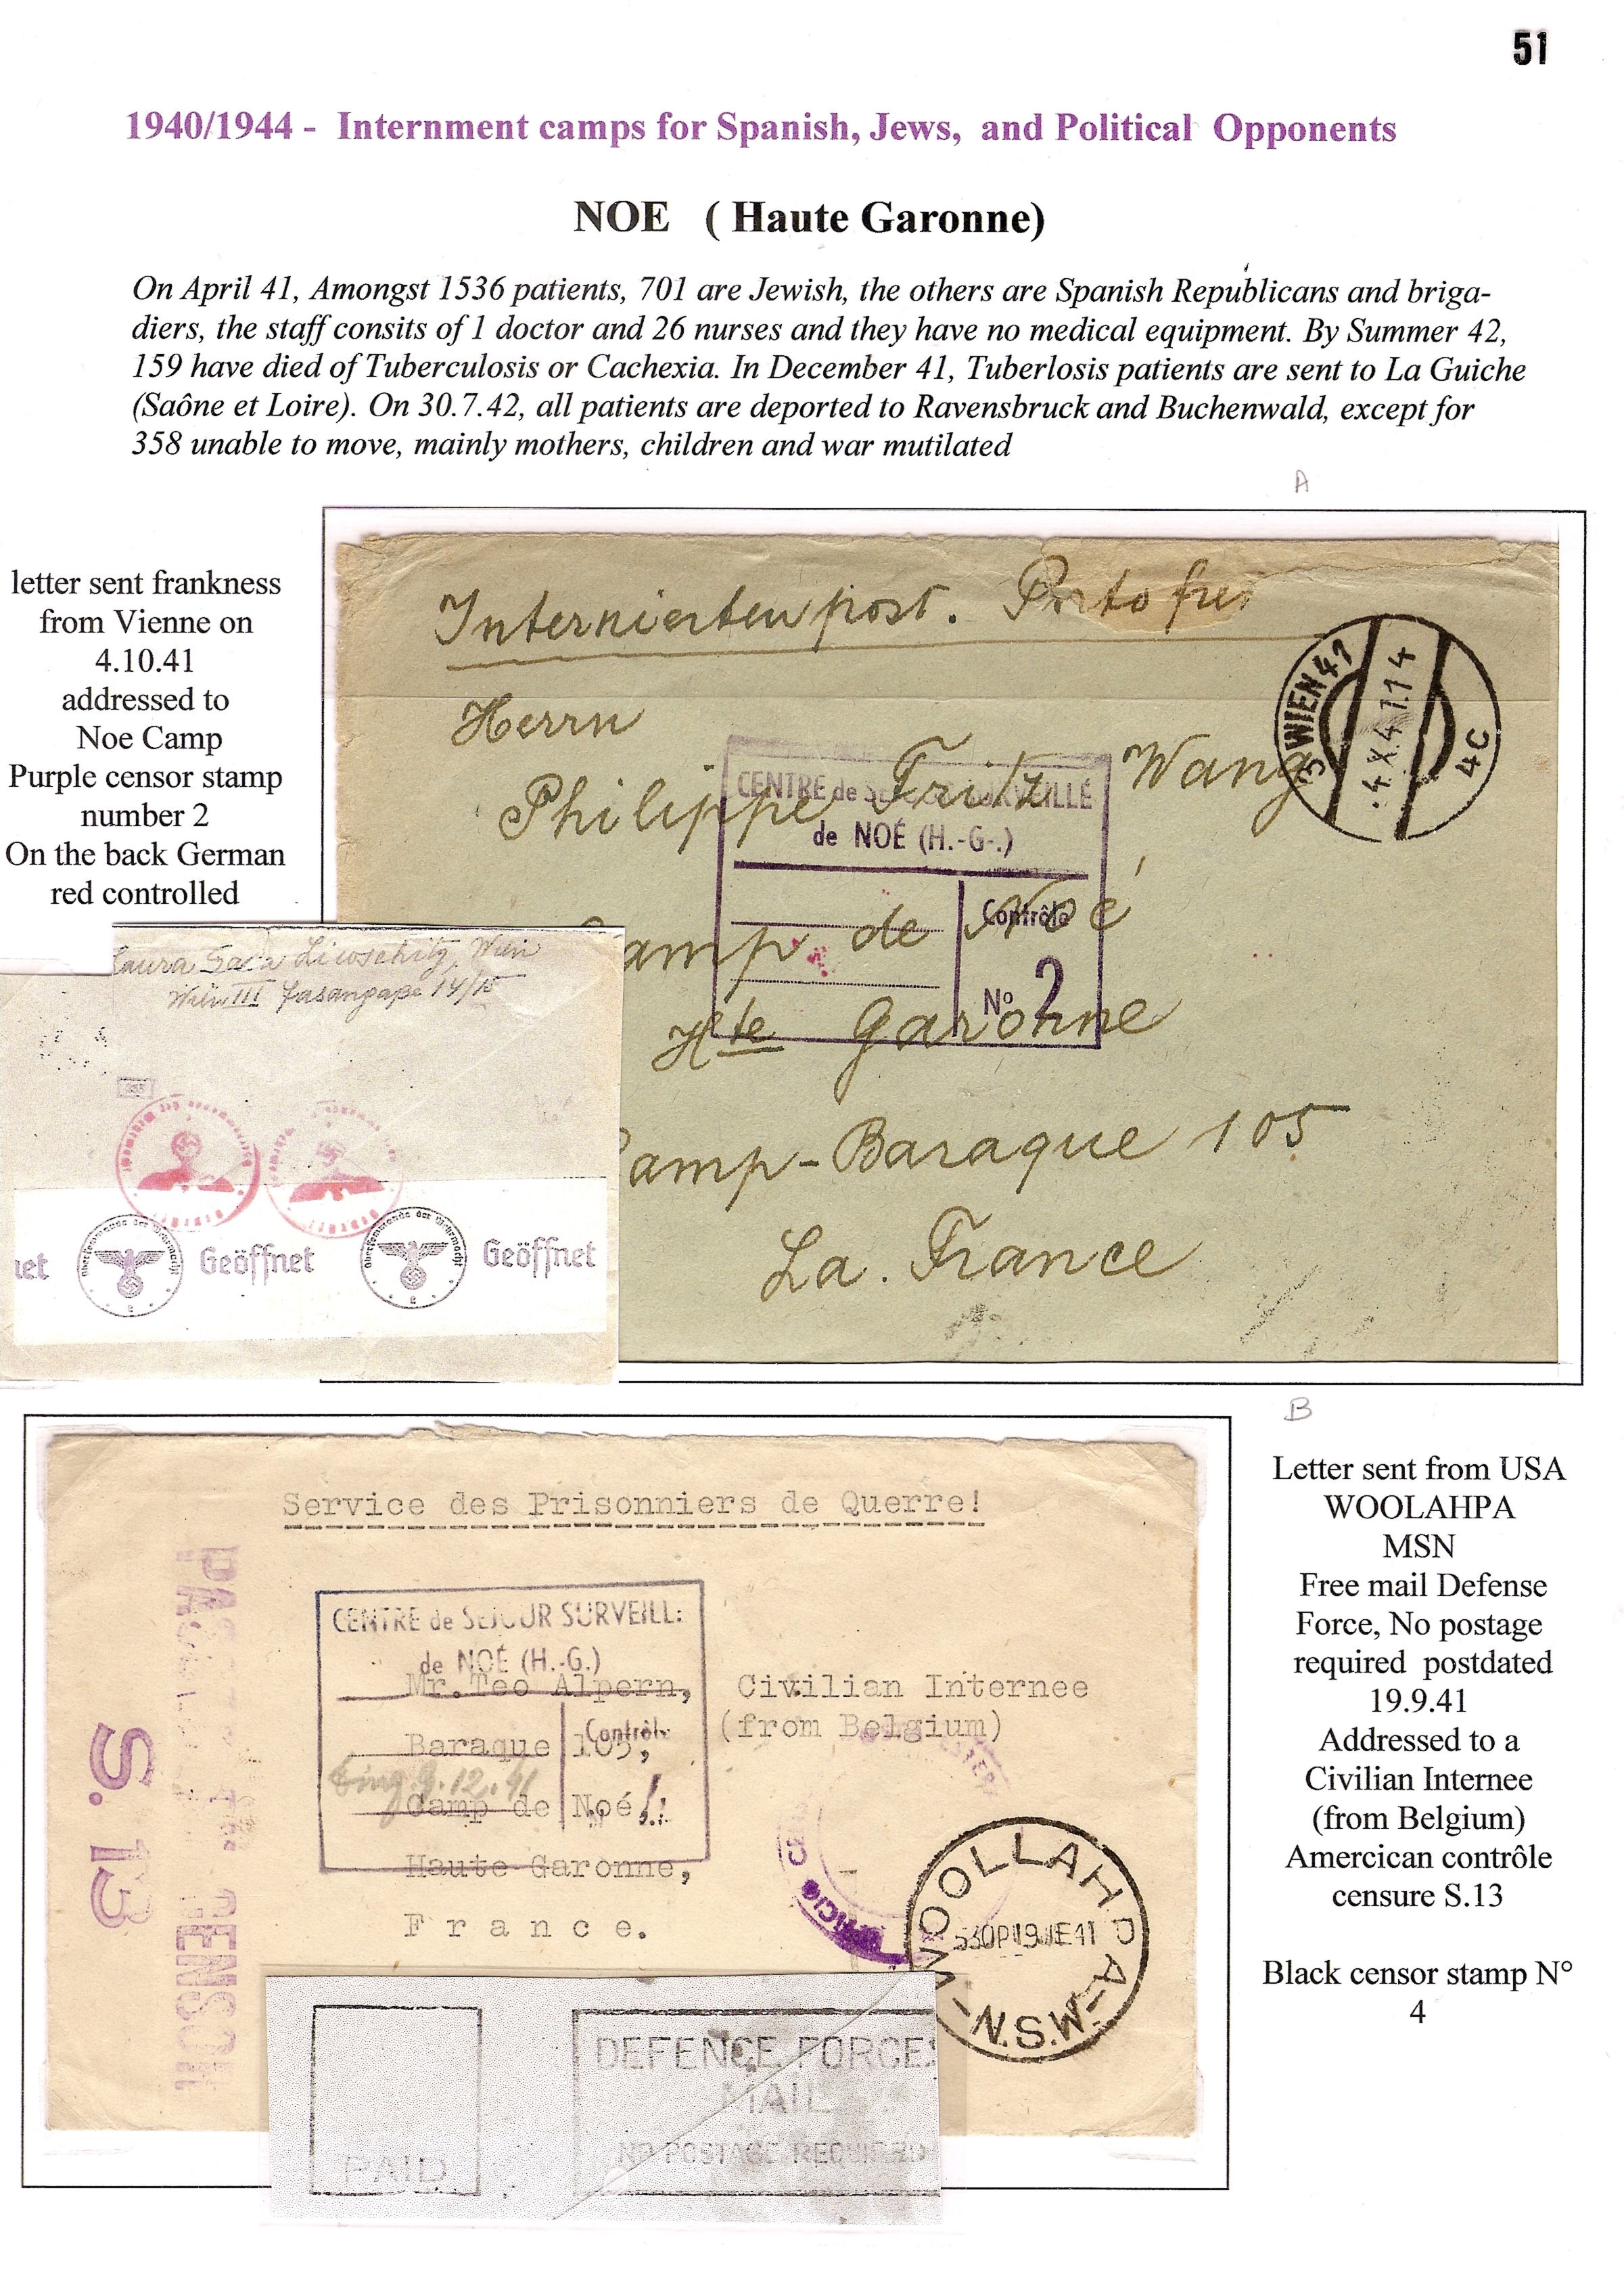 51
1940/1944 - Internment camps for Spanish, Jews, and Political Opponents
NOE ( Haute Garonne)
On April 41, Amongst 1536 patients, 701 are Jewish, the others are Spanish Republicans and briga-
diers, the staff consits of 1 doctor and 26 nurses and they have no medical equipment. By Summer 42,
159 have died of Tuberculosis or Cachexia. In December 41, Tuberlosis patients are sent to La Guiche
(Saône et Loire). On 30.7.42, all patients are deported to Ravensbruck and Buchenwald, except for
358 unable to move, mainly mothers, children and war mutilated
A
letter sent frankness
from Vienne on
4.10.41
addressed to
Noe Camp
Purple censor stamp
number 2
On the back German
red controlled
Internierten post. Portofrei
Herrn
Philippe Fritz Wang
Camp de Noé
Hte Garonne
Camp-Baraque 105
La. France
WIEN 41
4.X.41.14
4C
CENTRE de SEJOUR SURVEILLÉ
de NOÉ (H.-G-.)
Contrôle
No 2
Laura Sara Wien
Wien III Fasangaße 14/15
Geöffnet
Oberkommando der Wehrmacht
Geöffnet
B
Service des Prisonniers de Querre!
CENTRE de SEJOUR SURVEILL
de NOÉ (H.-G.)
Contrôle
Mr. Teo Alpern, Civilian Internee
Baraque 105, (from Belgium)
9.12.41
Camp de Noé
Haute Garonne,
F r a n c e.
CENSOR
S. 13
WOOLLAHRA-N.S.W.
530P 19 41
PAID
DEFENCE FORCES
MAIL
NO POSTAGE REQUIRED
Letter sent from USA
WOOLAHPA
MSN
Free mail Defense
Force, No postage
required postdated
19.9.41
Addressed to a
Civilian Internee
(from Belgium)
Amercican contrôle
censure S.13
Black censor stamp N°
4